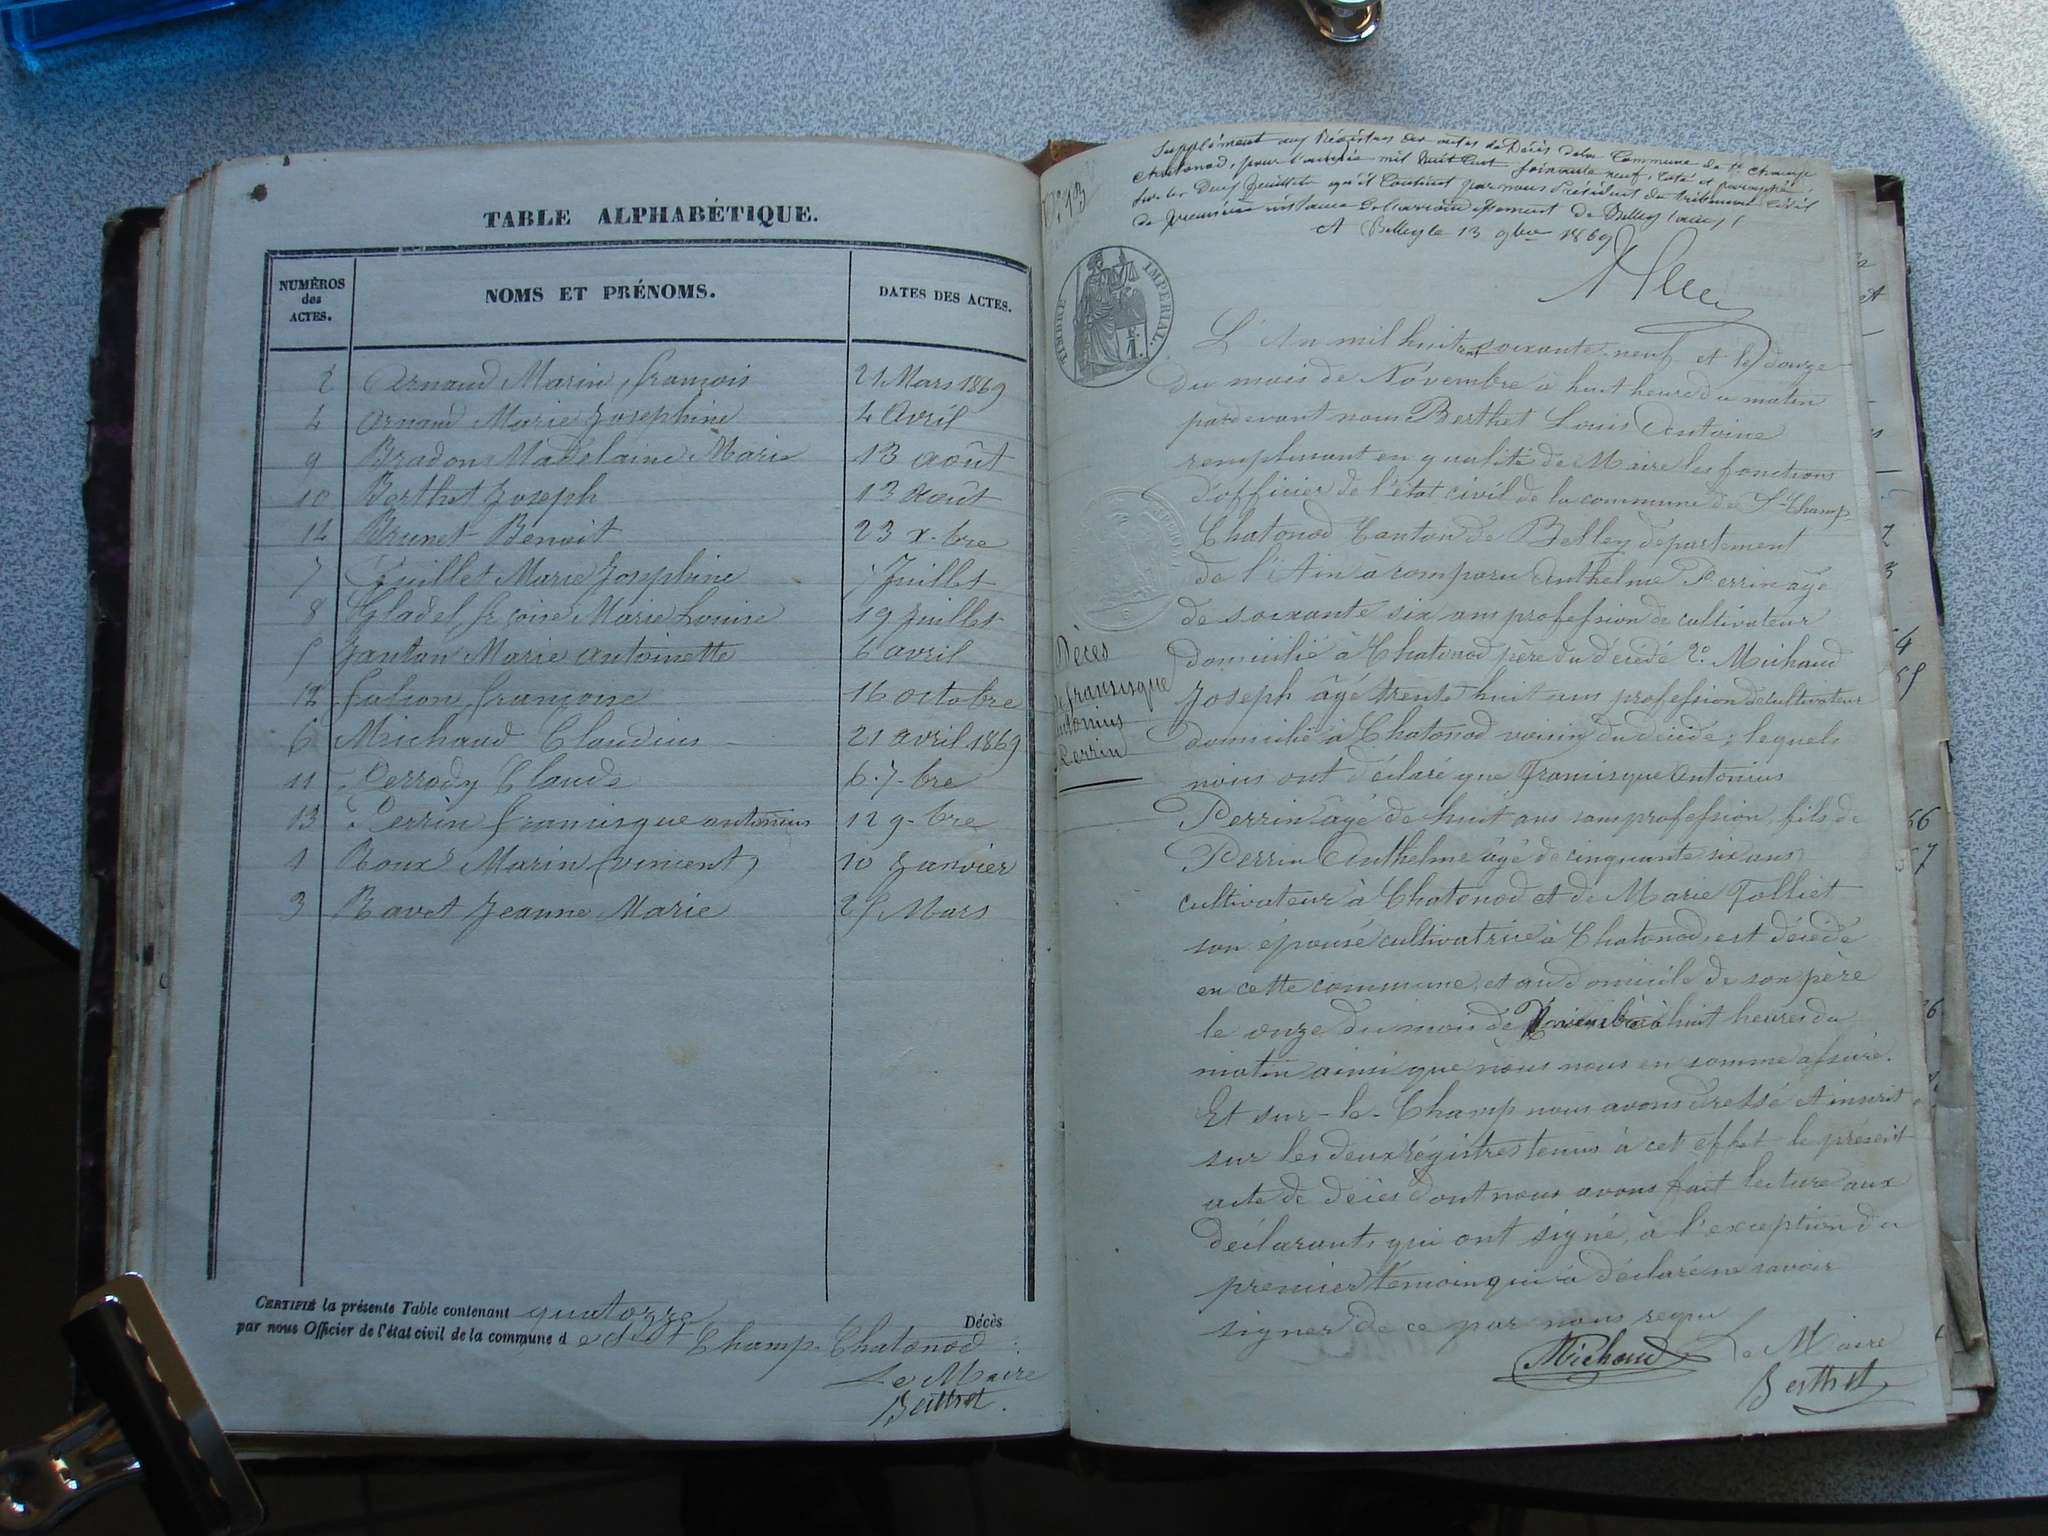 TABLE ALPHABÉTIQUE.
NUMÉROS des ACTES. NOMS ET PRÉNOMS. DATES DES ACTES.
2 Arnaud Marin, françois 21 Mars 1869
4 Arnaud Marie Josephine 4 Avril
9 Bradon Madelaine Marie 13 août
10 Berthet Joseph 13 Août
14 Brunet Benoit 23 x-bre
7 Guillet Marie Josephine 7 Juillet
8 Gladel fçoise Marie Louise 19 Juillet
5 Janton Marie Antoinette 6 avril
12 françoise 16 octobre
6 Michaud Claudius 21 avril 1869
11 Perrody Claude 6-7-bre
13 Perrin francisque antonius 12 9-bre
1 Roux Marin (vincent) 10 Janvier
3 Ravet Jeanne Marie 25 Mars
CERTIFIÉ la présente Table contenant quatorze Décès
par nous Officier de l'état civil de la commune de St Champ-Chatonod
Le Maire
Berthet
Supplément aux Régistres des actes de Décès de la Commune de St Champ
Chatonod, pour l'année mil huit Cent soixante neuf, coté et paraphé
sur les Deux feuillets qu'il Contient par nous Président du tribunal Civil
de Première instance de l'arrondissement de Belley (ain)
A Belley le 13 9bre 1869
N° 13
TIMBRE IMPERIAL.
L'An mil huit cent soixante-neuf et le douze
du mois de Novembre à huit heure du matin
pardevant nous Berthet Louis Antoine
remplissant en qualité de Maire les fonctions
d'officier de l'état civil de la commune de St-Champ-
Chatonod Canton de Belley département
de l'Ain à comparu Anthelme Perrin âgé
de soixante six ans profession de cultivateur
domicilié à Chatonod père du décédé 2° Michaud
Joseph âgé trente huit ans profession de cultivateur
domicilié à Chatonod voisin du décédé; lequels
nous ont déclaré que Francisque Antonius
Perrin âgé de huit ans sans profession, fils de
Perrin Anthelme âgé de cinquante six ans
cultivateur à Chatonod et de Marie Folliet
son épouse cultivatrice à Chatonod, est décédé
en cette commune, et au domicile de son père
le onze du mois de Novembre à huit heures du
matin ainsi que nous nous en somme assuré.
Et sur-le-Champ nous avons dressé et inscrit
sur les deux régistres tenus à cet effet le présent
acte de décès dont nous avons fait lecture aux
déclarants, qui ont signé, à l'exception du
premier témoin qui a déclaré ne savoir
signer de ce par nous requi
Michaud Le Maire
Berthet
Décès
de francisque
antonius
Perrin